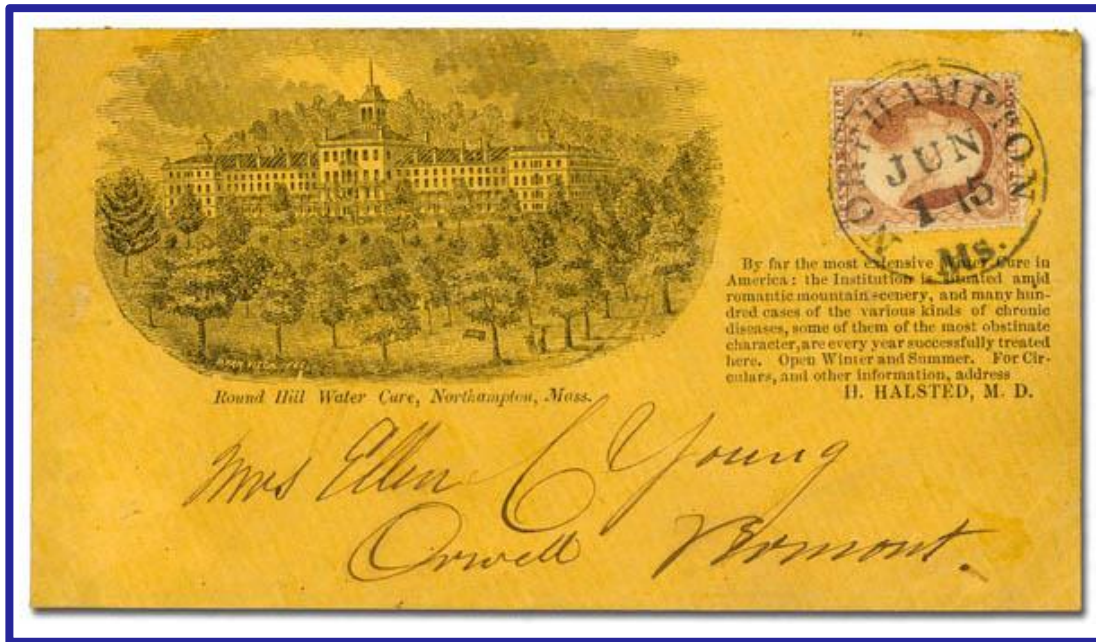 NORTHAMPTON
JUN
15
Ms.
By far the most extensive Water Cure in
America: the Institution is situated amid
romantic mountain scenery, and many hun-
dred cases of the various kinds of chronic
diseases, some of them of the most obstinate
character, are every year successfully treated
here. Open Winter and Summer. For Cir-
culars, and other information, address
H. HALSTED, M. D.
Round Hill Water Cure, Northampton, Mass.
Mrs Ellen C Young
Orwell Vermont.